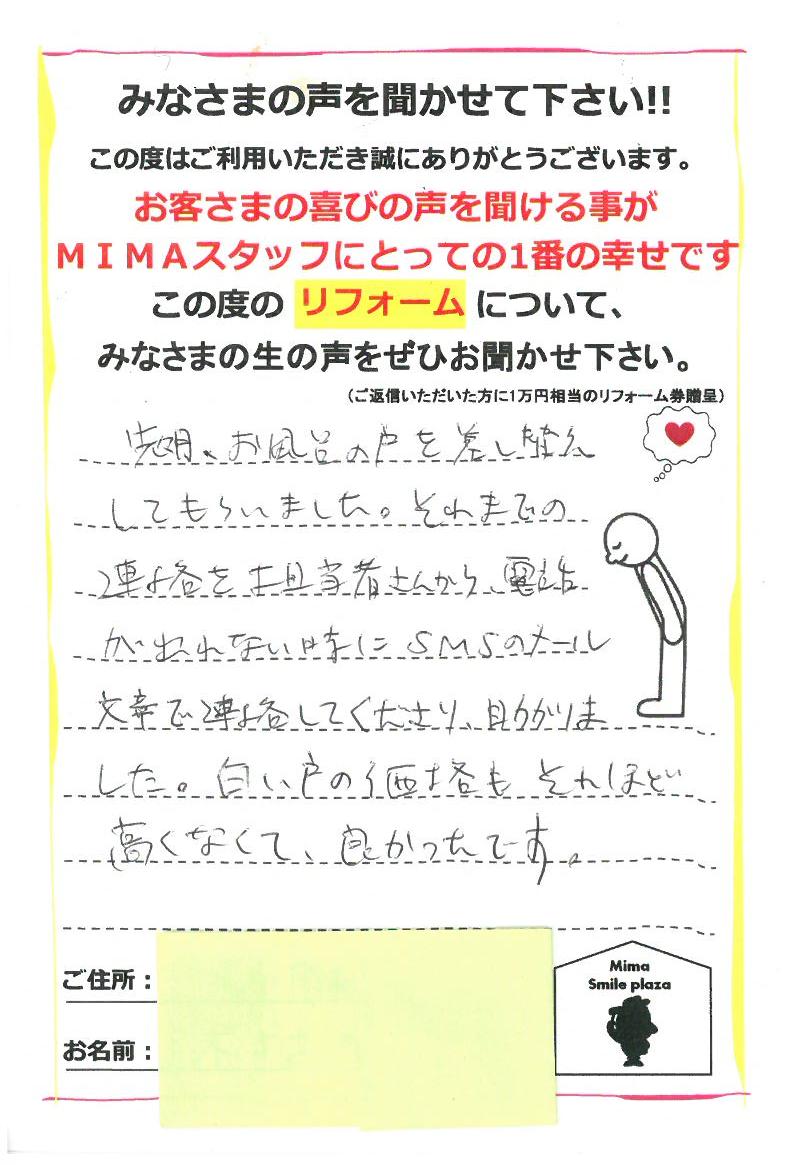 みなさまの声を聞かせて下さい!!
この度はご利用いただき誠にありがとうございます。
お客さまの喜びの声を聞ける事が
ＭＩＭＡスタッフにとっての1番の幸せです
この度の リフォーム について、
みなさまの生の声をぜひお聞かせ下さい。
(ご返信いただいた方に1万円相当のリフォーム券贈呈)
、お風呂の戸を差し替え
してもらいました。それまでの
連絡を担当者さんから、電話
が出れない時にSMSのメール
文章で連絡してくださり、助かりま
した。白い戸の価格もそれほど
高くなくて、良かったです。
ご住所：
お名前：
Mima
Smile plaza